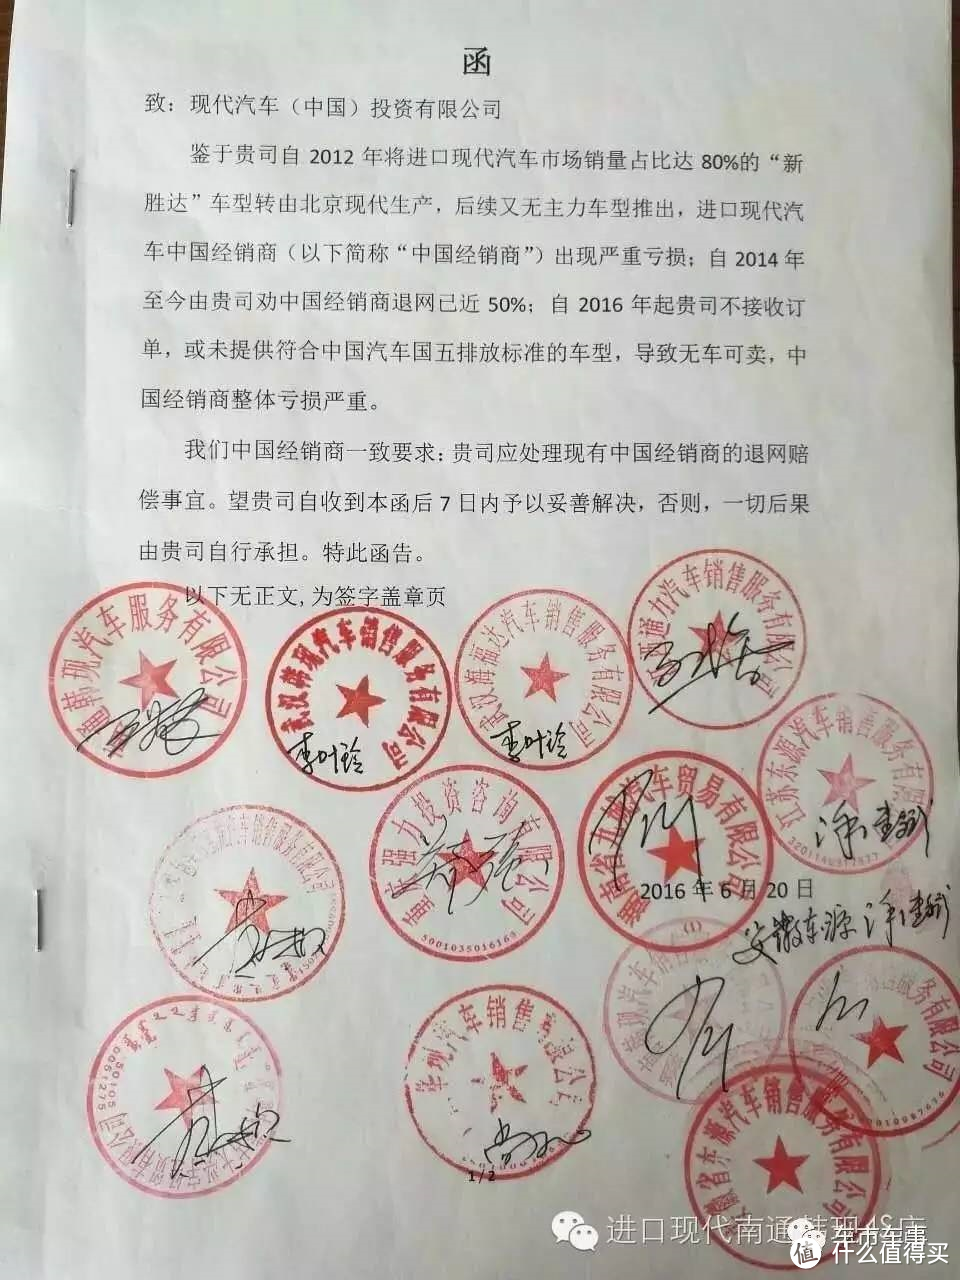 函
致：现代汽车（中国）投资有限公司
鉴于贵司自 2012 年将进口现代汽车市场销量占比达 80%的“新
胜达”车型转由北京现代生产，后续又无主力车型推出，进口现代汽
车中国经销商（以下简称“中国经销商”）出现严重亏损；自 2014 年
至今由贵司劝中国经销商退网已近 50%；自 2016 年起贵司不接收订
单，或未提供符合中国汽车国五排放标准的车型，导致无车可卖，中
国经销商整体亏损严重。
我们中国经销商一致要求：贵司应处理现有中国经销商的退网赔
偿事宜。望贵司自收到本函后 7 日内予以妥善解决，否则，一切后果
由贵司自行承担。特此函告。
以下无正文,为签字盖章页
韩现汽车服务有限公司
武汉韩现汽车销售服务有限公司
武汉海福达汽车销售服务有限公司
通力汽车销售服务有限公司
李叶玲
李叶玲
江苏东源汽车销售服务有限
强力投资咨询有限公司
5001035016163
汽车贸易有限公司
2016 年 6 月 20 日
安徽东源
汽车销售有限公司
服务有限公司
安徽省东源汽车销售服务有限公司
1/2
进口现代南通韩现4S店
车市车事
值 什么值得买